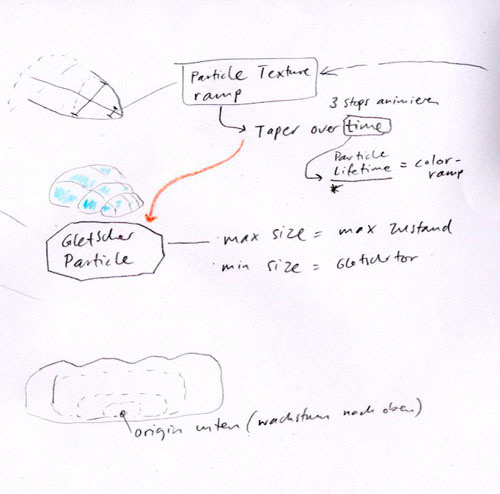 Particle Texture
ramp
3 stops animieren
Taper over time
Particle
Lifetime = color-
* ramp
Gletscher
Particle
max size = max Zustand
min size = Gletschertor
origin unten (wachstum nach oben)